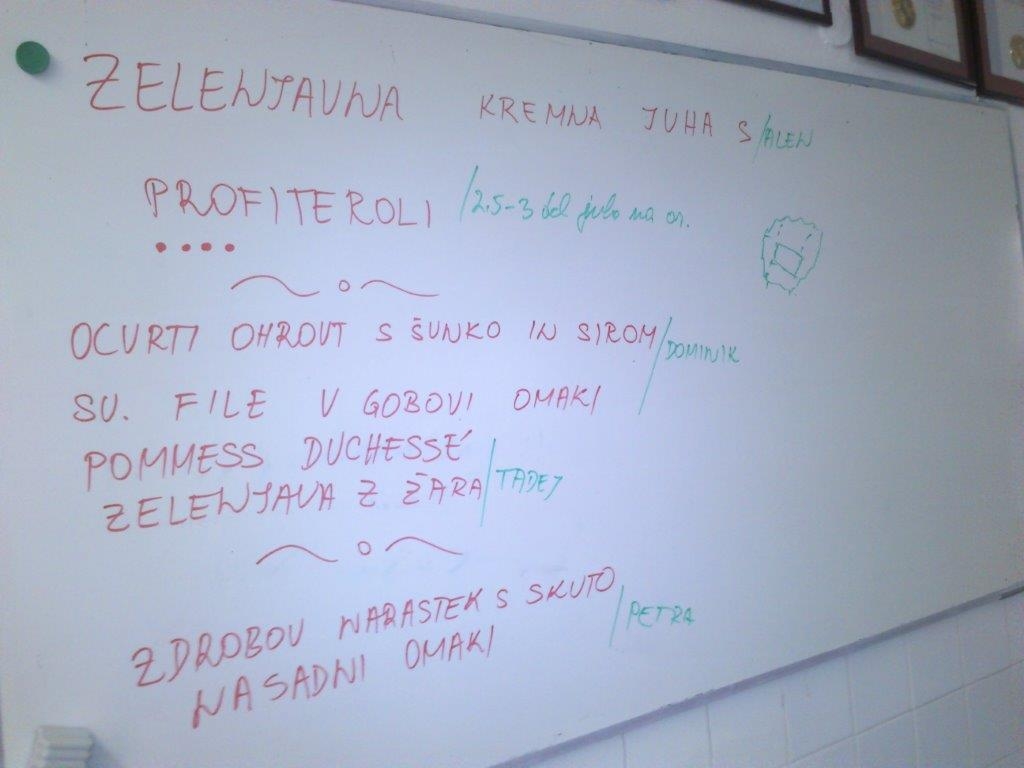 ZELENJAVNA KREMNA JUHA S /ALEN
PROFITEROLI /2.5-3 del juho na os.
OCVRTI OHROVT S ŠUNKO IN SIROM /DOMINIK
SV. FILE V GOBOVI OMAKI
POMMESS DUCHESSÉ
ZELENJAVA Z ŽARA /TADEJ
ZDROBOV NARASTEK S SKUTO /PETRA
NA SADNI OMAKI